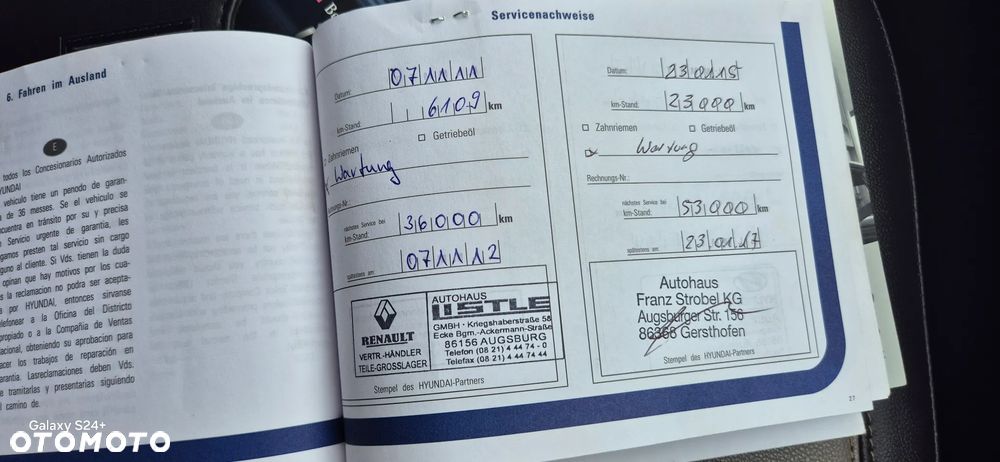 6. Fahren im Ausland
E
todos los Concesionarios Autorizados
YUNDAI
vehiculo tiene un penodo de garan-
a de 36 messes. Se el vehiculo se
cuentra en tránsito por su y precisa
Servicio urgente de garantia, les
gamos presten tal servicio sin cargo
guno al cliente. Si Vds. tienen la duda
opinan que hay motivos por los cua-
s la reclamacion no podra ser acepta-
a por HYUNDAI, entonces sirvanse
elefonear a la Oficina del Districto
propiado o a la Compañia de Ventas
acional, obteniendo su aprobacion para
acer los trabajos de reparación en
arantia. Lasreclamaciones deben Vds.
e tramitarlas y presentarias siguiendo
l camino de.
Servicenachweise
Datum: 07 11 11
km-Stand: 6109 km
Zahnriemen
Getriebeöl
Wartung
nungs-Nr.:
nächstes Service bei
km-Stand: 36000 km
spätestens am: 07 11 12
RENAULT
VERTR.-HÄNDLER
TEILE-GROSSLAGER
AUTOHAUS
USTLE
GMBH · Kriegshaberstraße 58
Ecke Bgm.-Ackermann-Straße
86156 AUGSBURG
Telefon (08 21) 4 44 74 - 0
Telefax (08 21) 4 44 74 44
Stempel des HYUNDAI-Partners
Datum: 23 01 15
km-Stand: 23000 km
Zahnriemen
Getriebeöl
Wartung
Rechnungs-Nr.:
nächstes Service bei
km-Stand: 53000 km
spätestens am: 23 01 17
Autohaus
Franz Strobel KG
Augsburger Str. 156
86368 Gersthofen
Stempel des HYUNDAI-Partners
27
Galaxy S24+
OTOMOTO